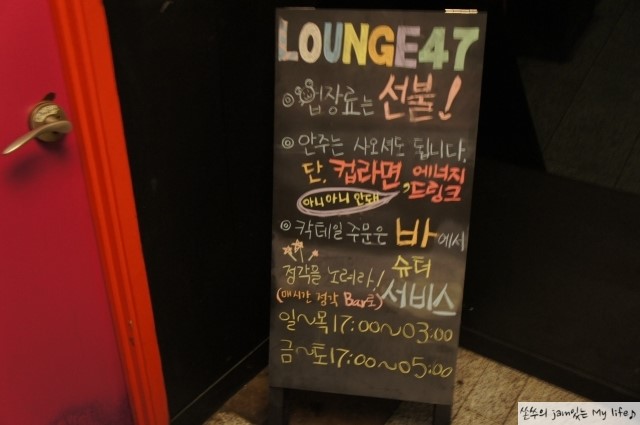 LOUNGE47
◎ 입장료는 선불!
◎ 안주는 사오셔도 됩니다.
단, 컵라면, 에너지드링크
아니아니 안돼
◎ 칵테일 주문은 바에서
정각을 노려라! 슈터
(매시간 정각 Bar로) 서비스
일~목 17:00~03:00
금~토 17:00~05:00
쏜쑤의 jam있는 My life♪